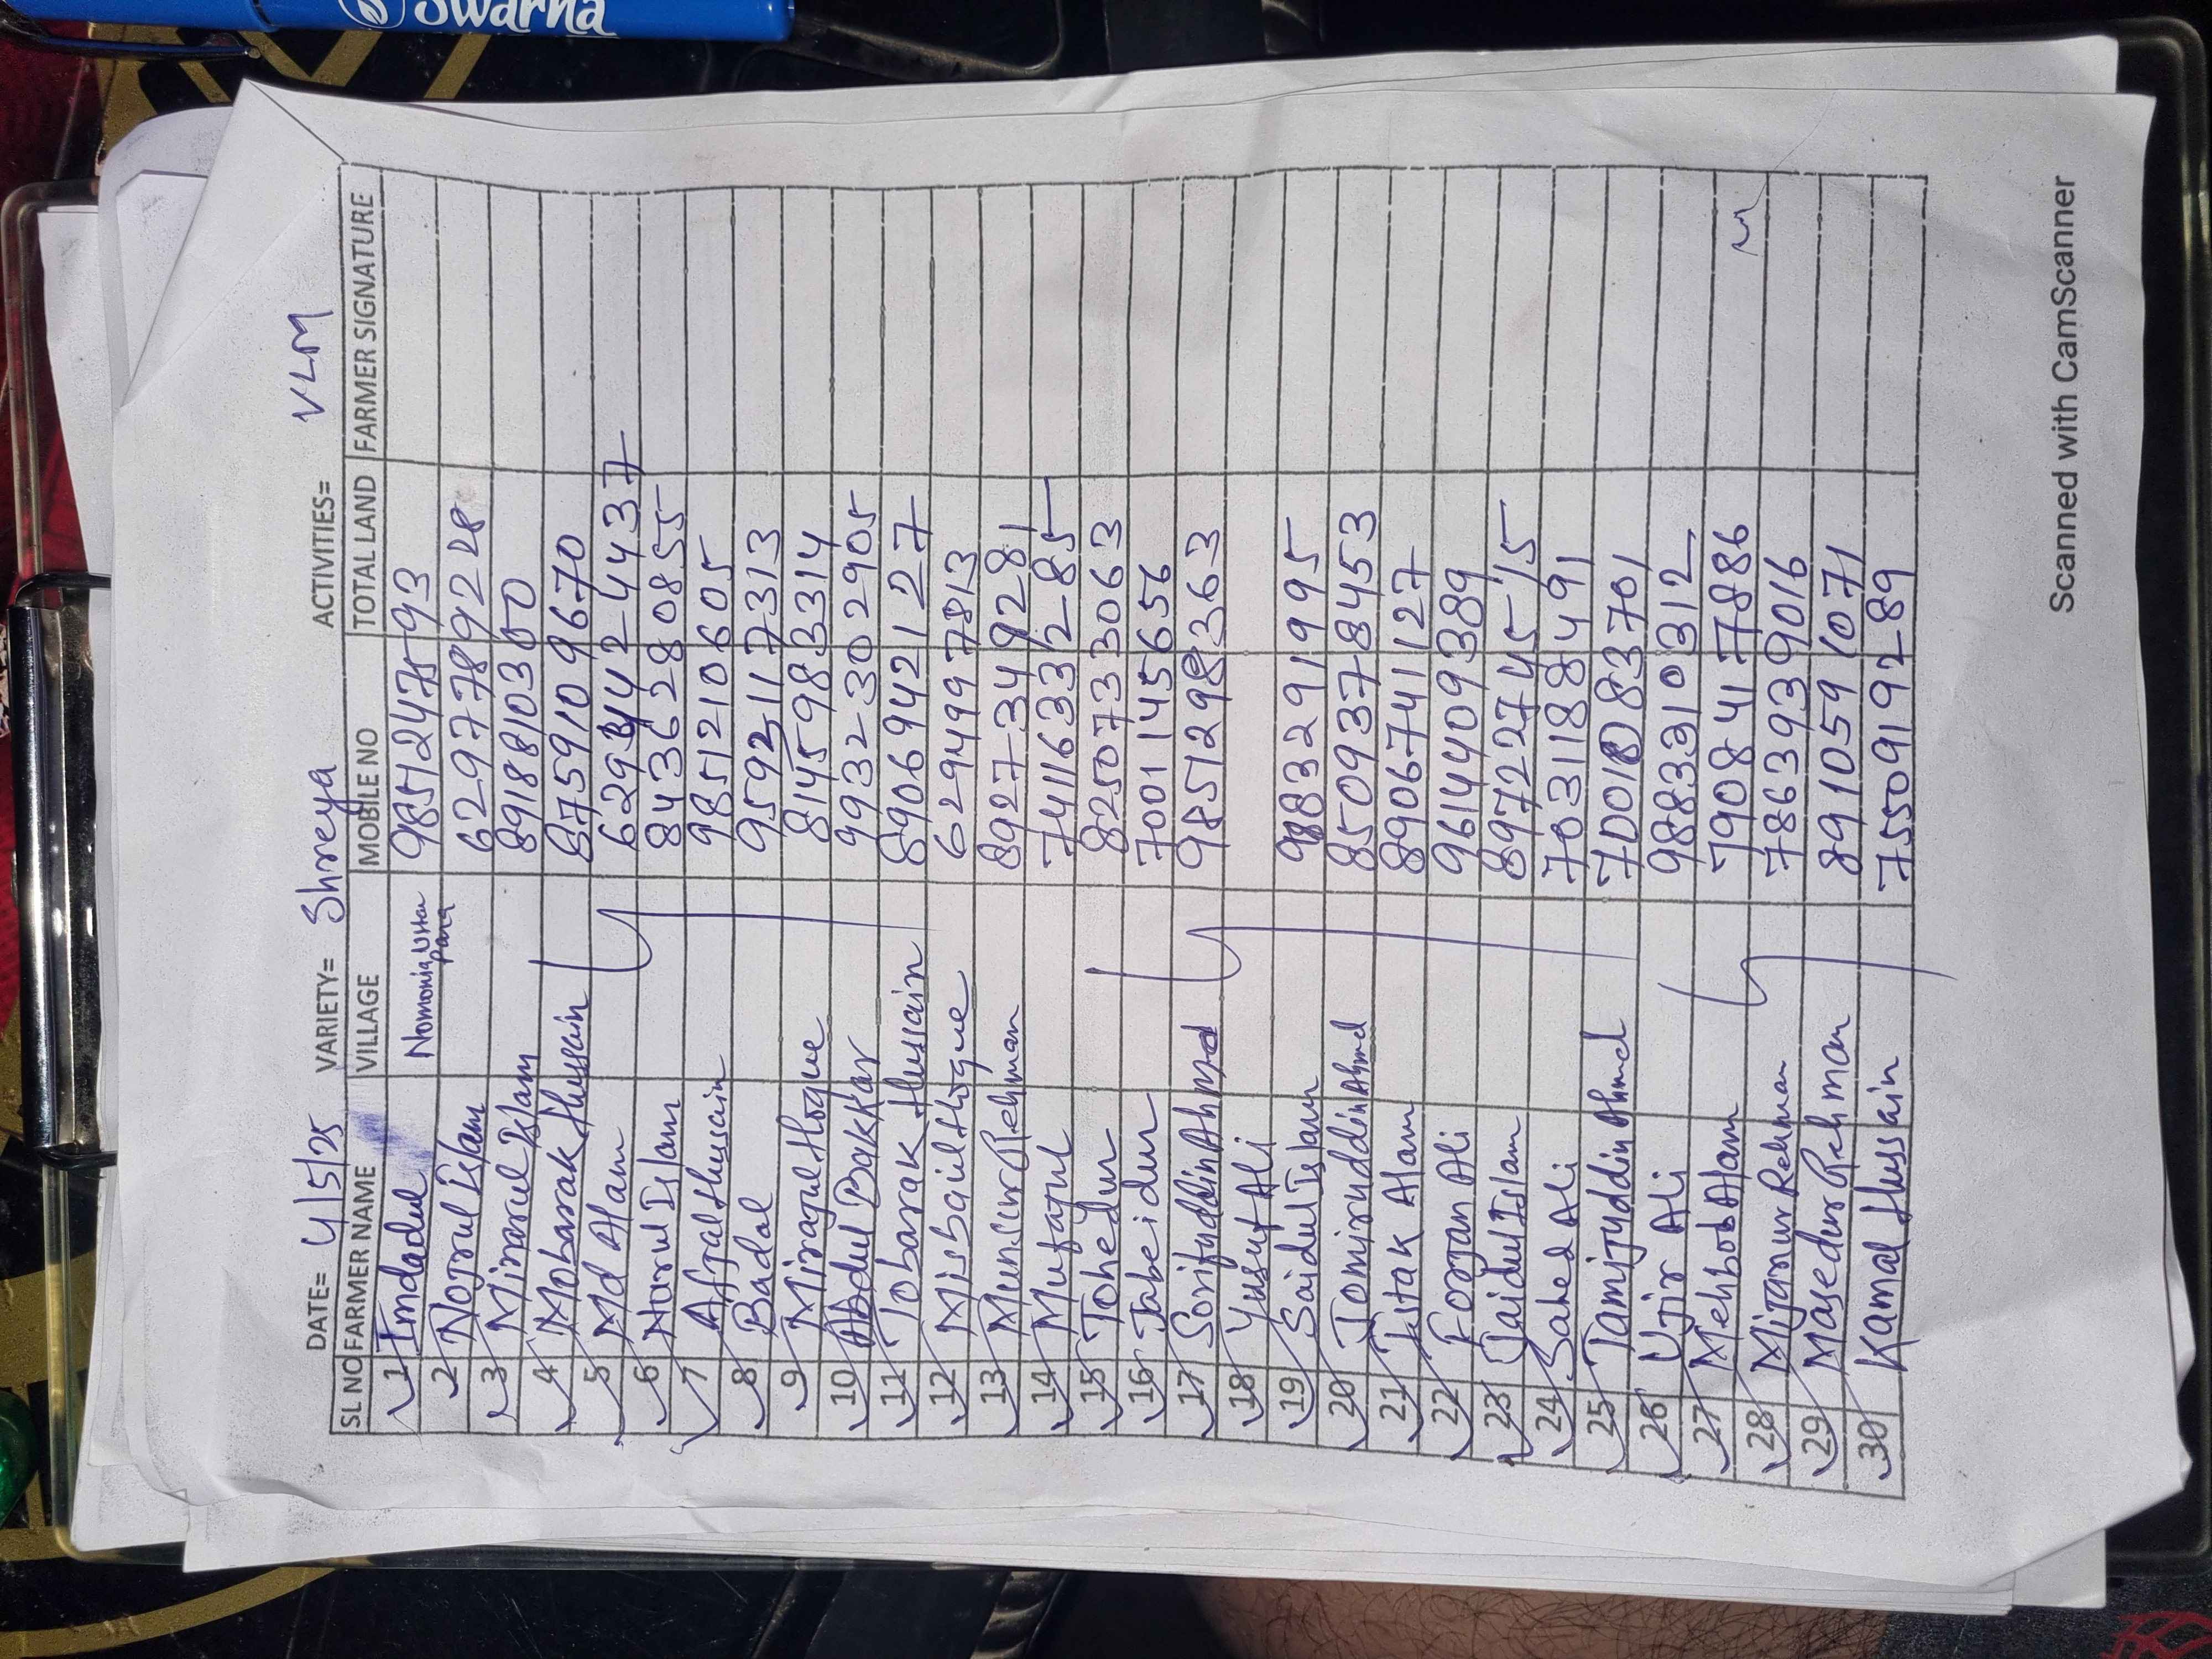 Swarna
DATE= 4/5/25 VARIETY= Shreya ACTIVITIES= VLM
SL NO FARMER NAME VILLAGE MOBILE NO TOTAL LAND FARMER SIGNATURE
1 Imdadul Nomonia Utter Para 9851247593
2 Nojrul Islam 6297789228
3 Mirarul Islam
4 Mobarak Hussain 8759109670
5 Md Alam
6 Nurul Islam 8436280855
7 Afjal Hussain 9851210605
8 Badal 9592117313
9 Mirajul Hoque 8145983314
10 Abdul Bakkar 9932302905
11 Tobarak Hussain 8906942127
12 Misbaul Hoque 6294997813
13 Muncur Rehman 8927349281
14 Mufajul
15 Tohedur 8250733063
16 Jabeidur 7001145656
17 Sorifuddin Ahmed 9851298363
18 Yusuf Ali
19 Saidul Islam 9832291995
20 Jomiruddin Ahmd 8509378453
21 Istak Alam 8906741127
22 Forjan Ali 9614409389
23 Jaidul Islam 8972274515
24 Sahed Ali 7031188491
25 Tamijuddin Ahmed
26 Ujir Ali 9883310312
27 Mehbob Alam 7908417886
28 Mijanur Rehman 7863939016
29 Masedur Rehman 8910591071
30 Kamal Hussain 7550919289
Scanned with CamScanner